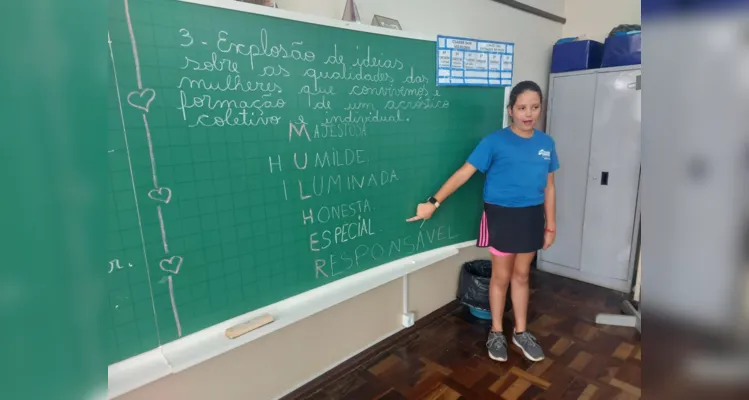 3 - Explosão de ideias
sobre as qualidades das
mulheres que convivemos e
formação de um acróstico
coletivo e individual.
MAJESTOSA
HUMILDE
ILUMINADA
HONESTA
ESPECIAL
RESPONSÁVEL